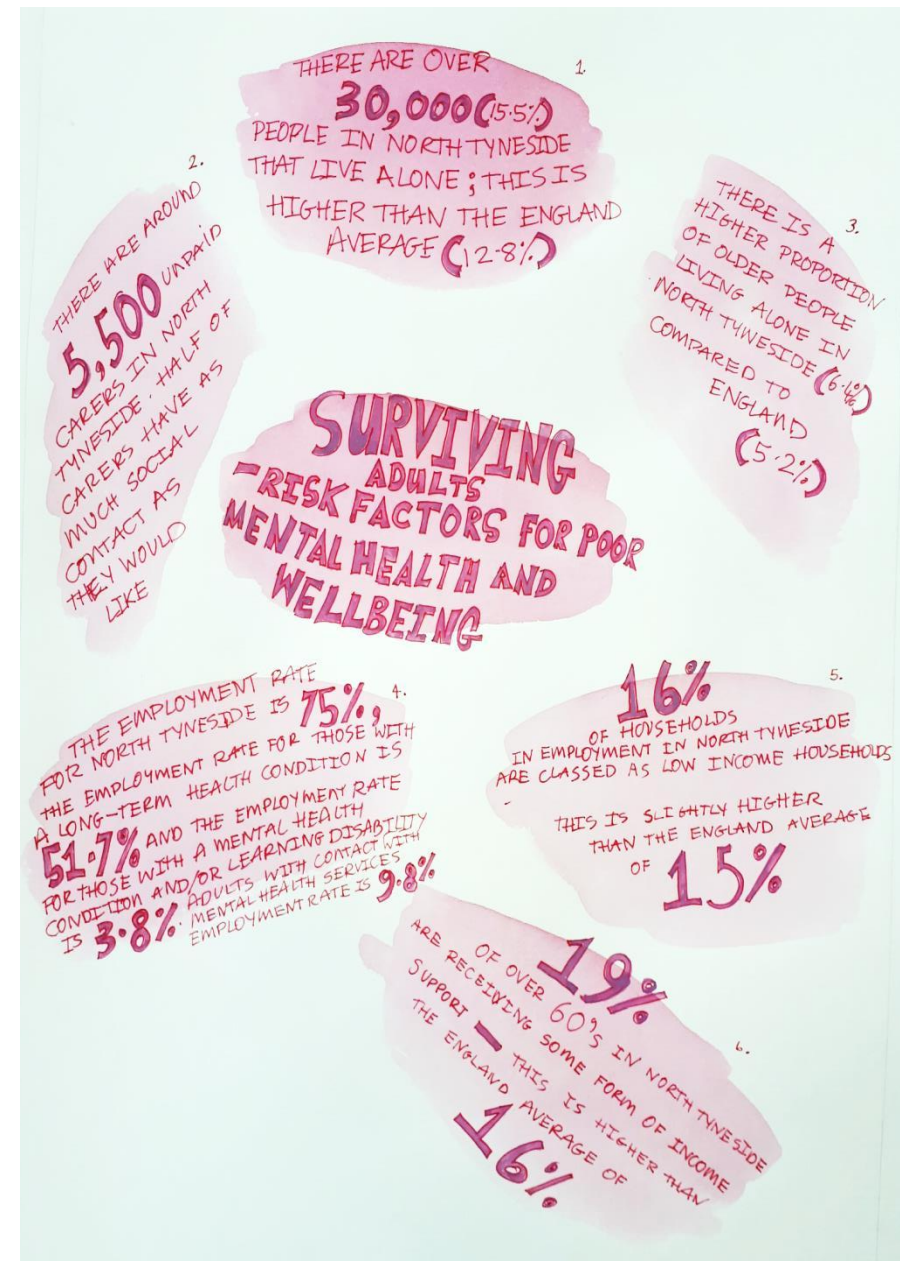 1.
THERE ARE OVER
30,000 (15.5%)
PEOPLE IN NORTH TYNESIDE
THAT LIVE ALONE; THIS IS
HIGHER THAN THE ENGLAND
AVERAGE (12.8%)
2.
THERE ARE AROUND
5,500 UNPAID
CARERS IN NORTH
TYNESIDE. HALF OF
CARERS HAVE AS
MUCH SOCIAL
CONTACT AS
THEY WOULD
LIKE
3.
THERE IS A
HIGHER PROPORTION
OF OLDER PEOPLE
LIVING ALONE IN
NORTH TYNESIDE
COMPARED TO
ENGLAND
(5.2%)
SURVIVING
ADULTS
- RISK FACTORS FOR POOR
MENTAL HEALTH AND
WELLBEING
4.
THE EMPLOYMENT RATE
FOR NORTH TYNESIDE IS 75%,
THE EMPLOYMENT RATE FOR THOSE WITH
A LONG-TERM HEALTH CONDITION IS
51.7% AND THE EMPLOYMENT RATE
FOR THOSE WITH A MENTAL HEALTH
CONDITION AND/OR LEARNING DISABILITY
IS 3.8%. ADULTS WITH CONTACT WITH
MENTAL HEALTH SERVICES
EMPLOYMENT RATE IS 9.8%
5.
16%
OF HOUSEHOLDS
IN EMPLOYMENT IN NORTH TYNESIDE
ARE CLASSED AS LOW INCOME HOUSEHOLDS
-
THIS IS SLIGHTLY HIGHER
THAN THE ENGLAND AVERAGE
OF 15%
6.
19%
OF OVER 60's IN NORTH TYNESIDE
ARE RECEIVING SOME FORM OF INCOME
SUPPORT - THIS IS HIGHER THAN
THE ENGLAND AVERAGE OF
16%